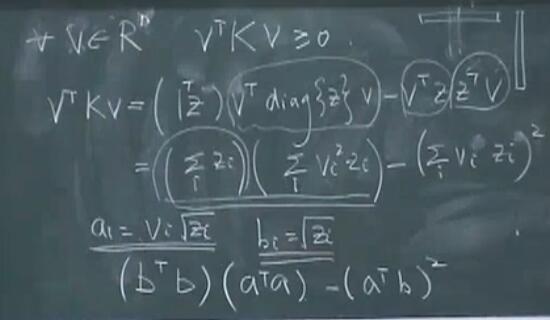 ∀ V ∈ Rⁿ  VᵀKV ≥ 0.
VᵀKV = (1ᵀz)(Vᵀ diag{z} V) − VᵀzzᵀV
= (∑ᵢ zᵢ)(∑ᵢ Vᵢ² zᵢ) − (∑ᵢ Vᵢ zᵢ)²
aᵢ = Vᵢ√zᵢ  bᵢ = √zᵢ
(bᵀb)(aᵀa) − (aᵀb)²